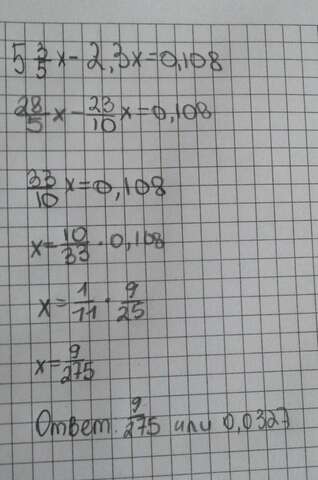 5 3/5 x - 2,3x = 0,108
28/5 x - 23/10 x = 0,108
33/10 x = 0,108
x = 10/33 · 0,108
x = 1/11 · 9/25
x = 9/275
Ответ: 9/275 или 0,0327